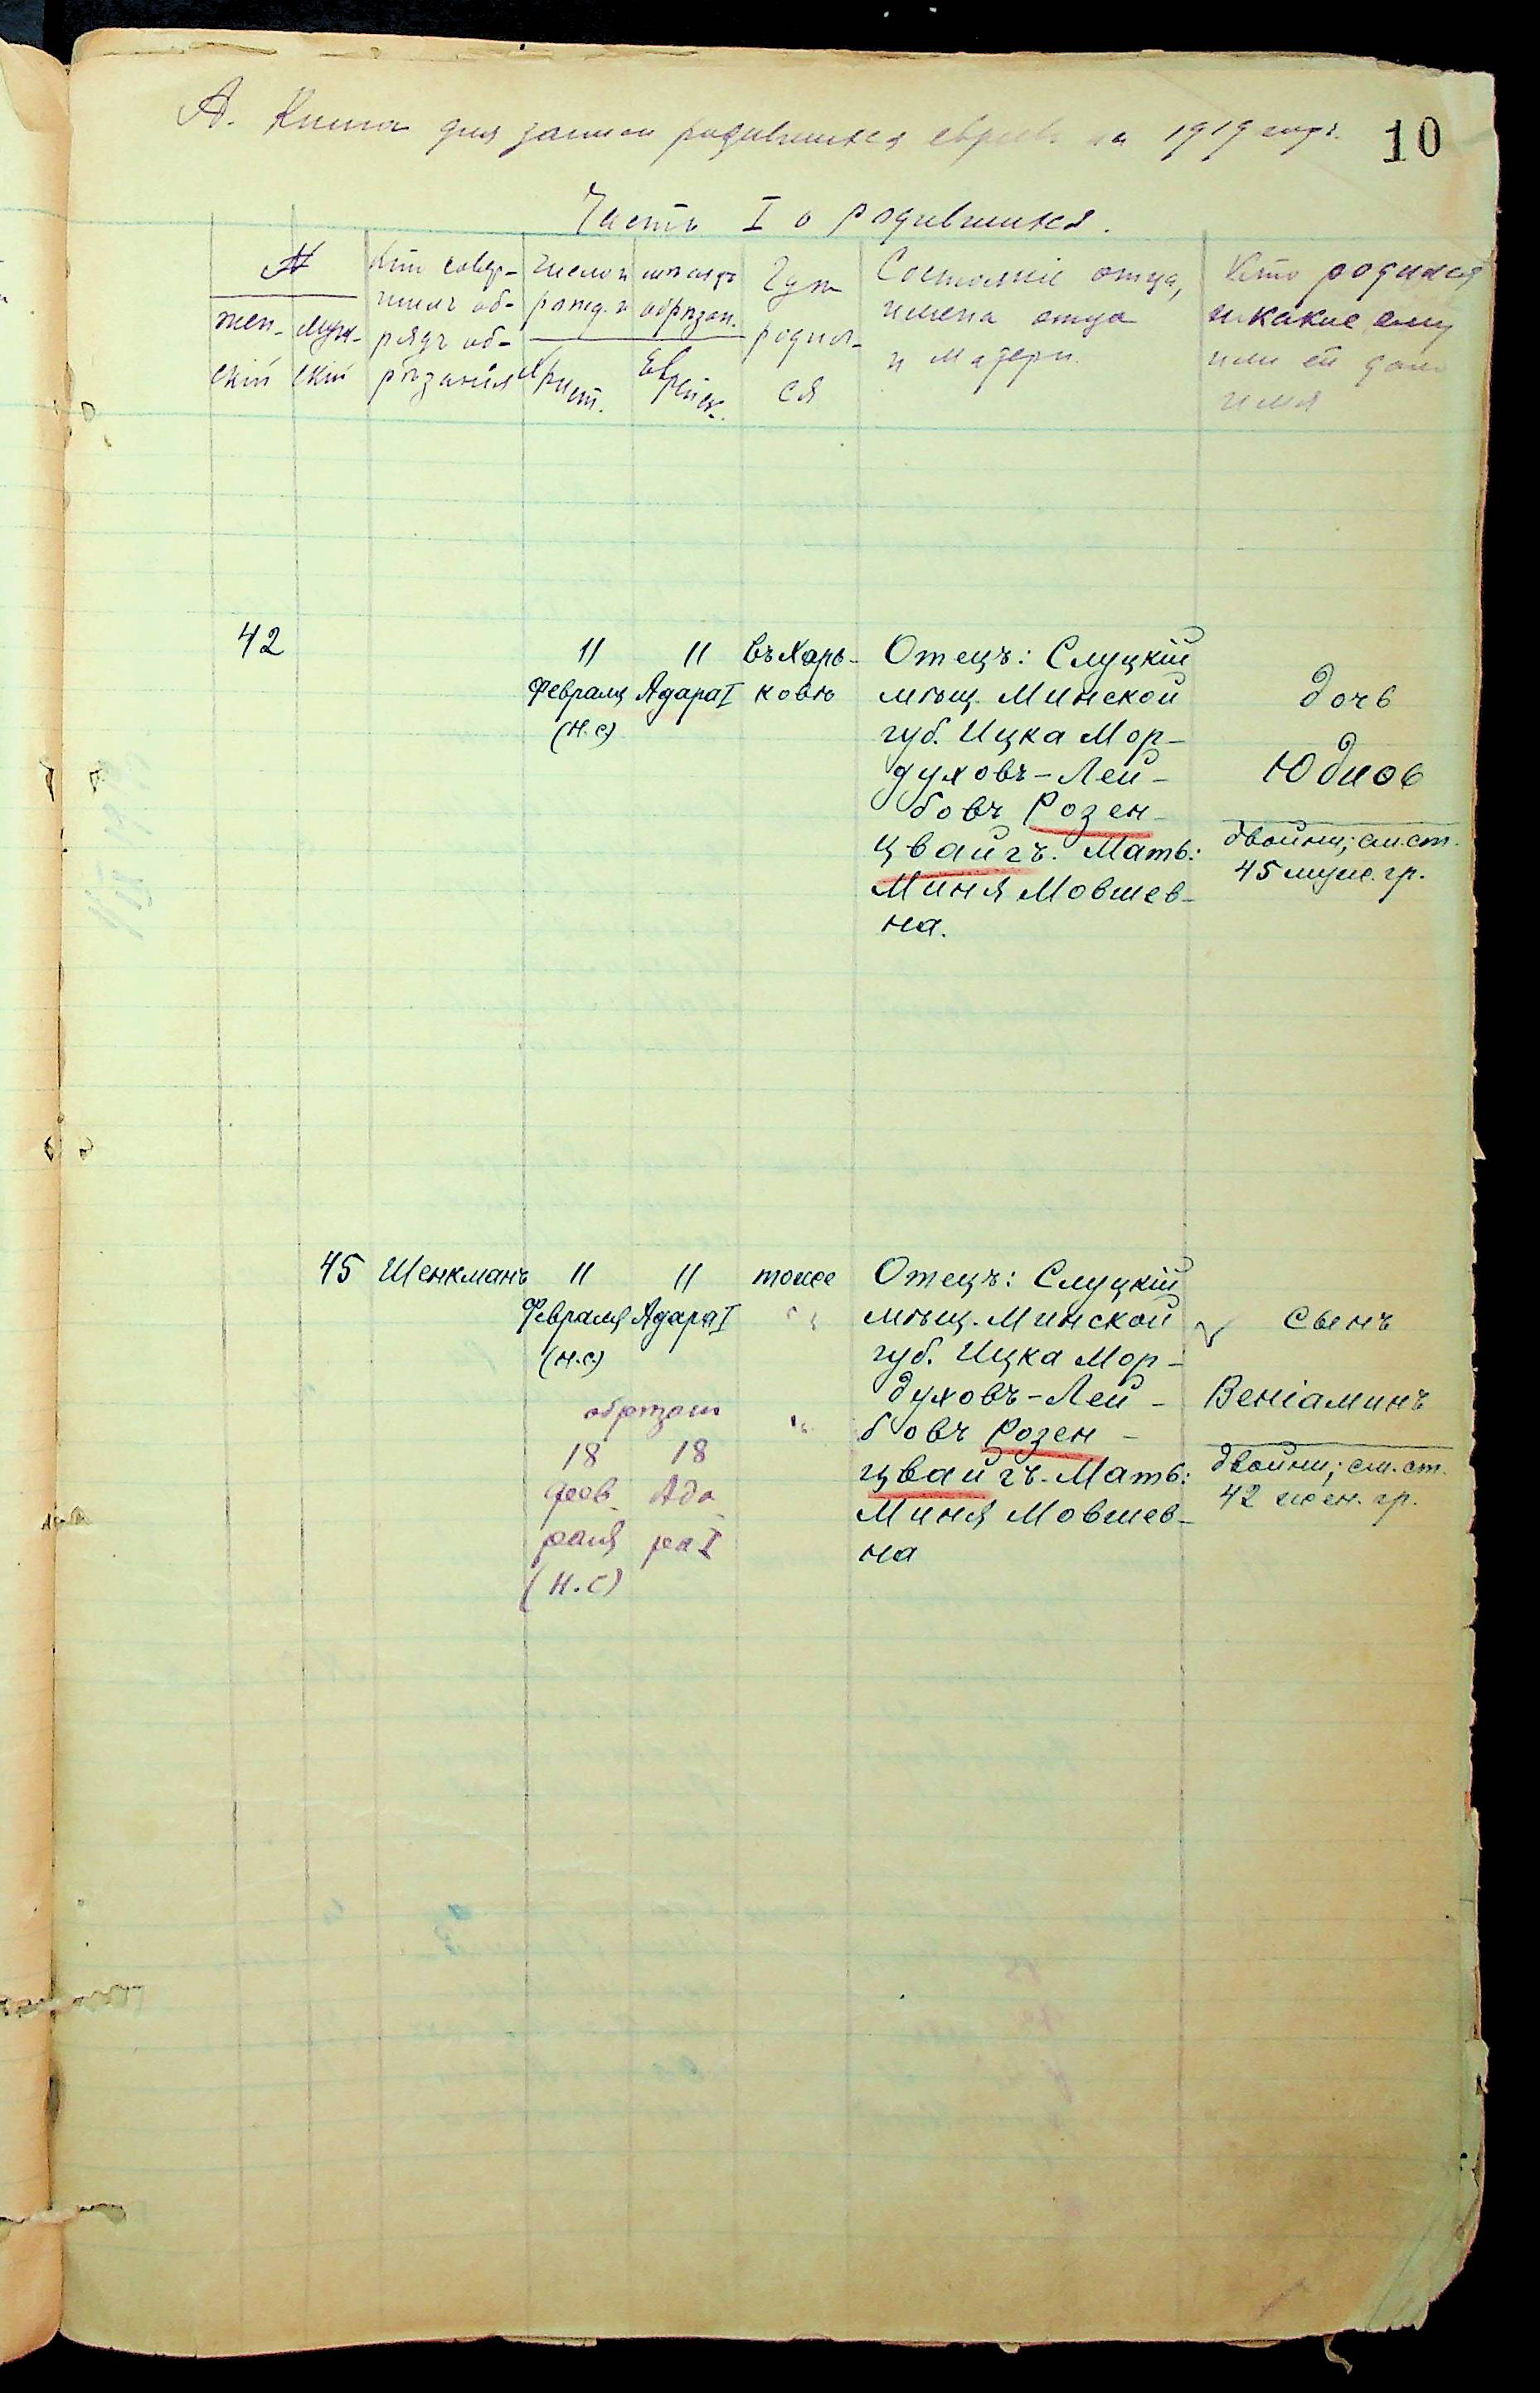 А. Книга для записи родившихся евреевъ на 1919 годъ.
10
Часть I о родившихся.
№
жен-
скій
муж-
скій
Кто совер-
шилъ об-
рядъ об-
рѣзанія
Число и мѣсяцъ
рожд. и обрѣзан.
Христ.
Еврейск.
Гдѣ
родил-
ся
Состояніе отца,
имена отца
и матери.
Кто родился
и какое ему
или ей дано
имя
42
11
Февраля
(н.с)
11
Адара I
въ Харь-
ковѣ
Отецъ: Слуцкій
мѣщ. Минской
губ. Ицка Мор-
духовъ-Лей-
бовъ Розен-
цвайгъ. Мать:
Миня Мовшев-
на.
дочь
Юдиѳь
двойни; см. ст.
45 муж. гр.
45
Шенкманъ
11
Февраля
(н.с)
11
Адара I
обрѣзан
18
фев-
раля
(н.с)
18
Ада
ра I
тоже
" "
"
Отецъ: Слуцкій
мѣщ. Минской
губ. Ицка Мор-
духовъ-Лей-
бовъ Розен-
цвайгъ. Мать:
Миня Мовшев-
на
сынъ
Веніаминъ
двойни; см. ст.
42 жен. гр.